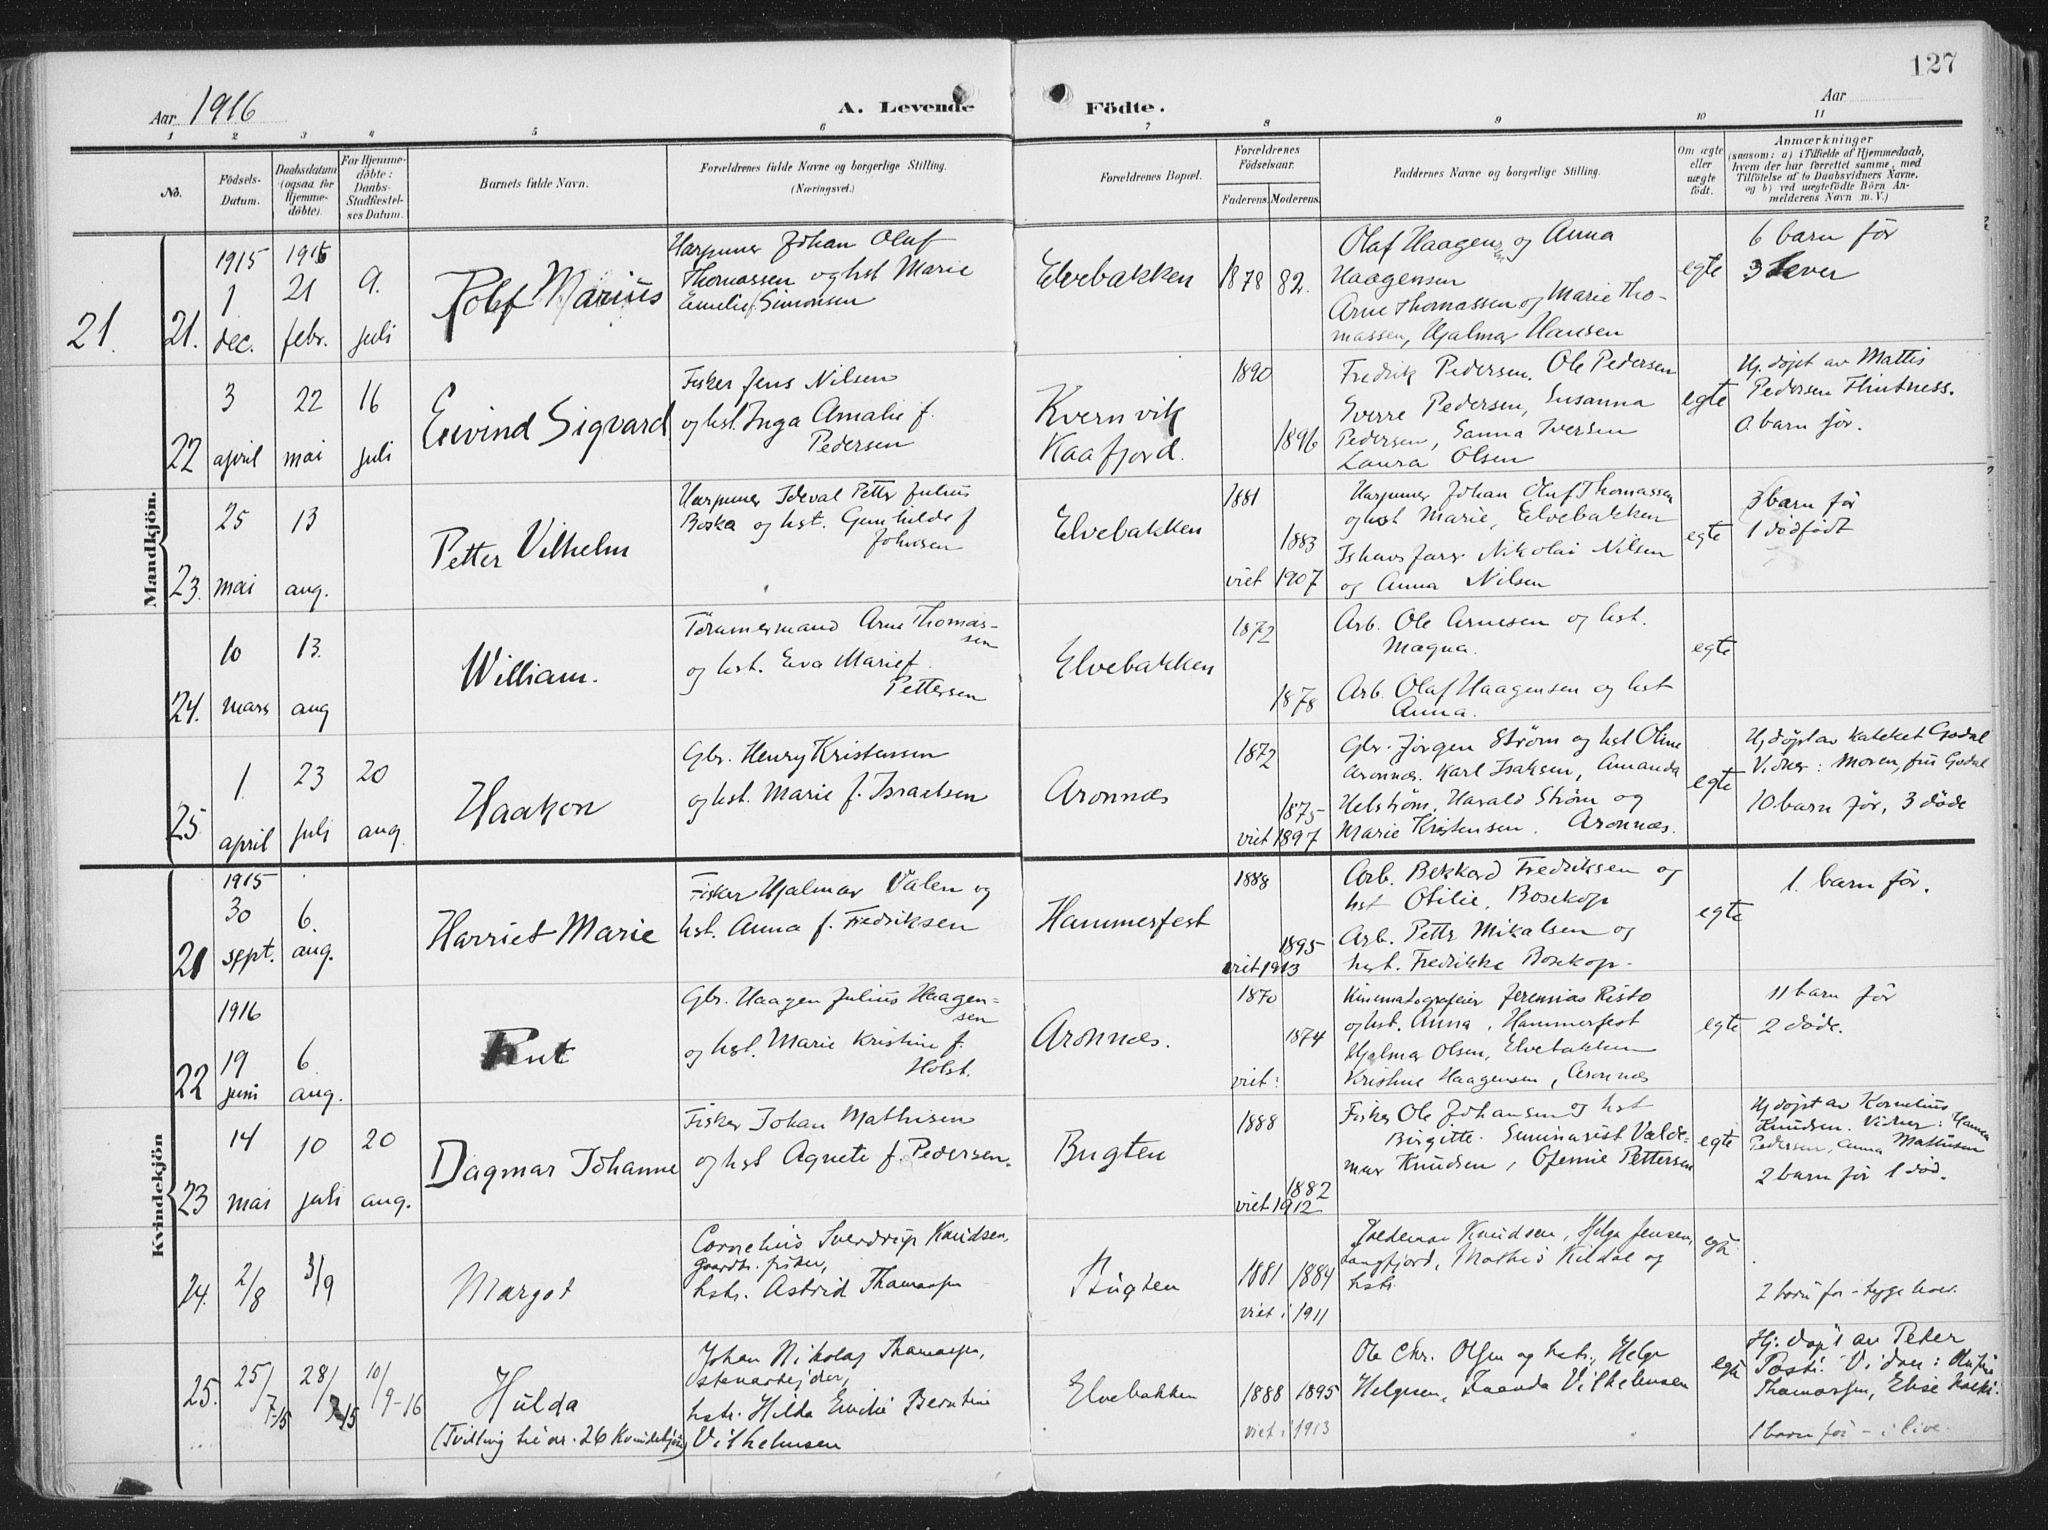 127
Aar 1916
A. Levende Födte.
Aar
1 2 3 4 5 6 7 8 9 10 11
No.
Födsels-Datum.
Daabsdatum (ogsaa for Hjemme-döbte).
For Hjemme-döbte: Daabs-Stadfæstel-ses Datum.
Barnets fulde Navn.
Forældrenes fulde Navne og borgerlige Stilling.
(Næringsvei.)
Forældrenes Bopæl.
Forældrenes Födselsaar.
Faderens. Moderens.
Faddernes Navne og borgerlige Stilling.
Om ægte eller uægte födt.
Anmærkninger
(saasom: a) i Tilfælde af Hjemmedaab,
hvem der har forrettet samme, med
Tilföielse af to Daabsvidners Navne,
og b) ved uægtefödte Börn An-
melderens Navn m. V.)
Mandkjön.
21.
21. 1915 1 dec. 1916 21 febr. 9. juli
Rolf Marius
Harpuner Johan Oluf
Thomassen og hst Marie
Emelie f. Simonsen
Elvebakken
1878 82.
Olaf Haagensen og Anna
Haagensen
Arne Thomassen og Marie Tho-
massen, Hjalmar Hansen
egte
6 barn før
3 lever
22 3 april 22 mai 16 juli
Eivind Sigvard
Fisker Jens Nilsen
og hst Inga Amalie f.
Pedersen
Kvernvik
Kaafjord.
1890
1896
Fredrik Pedersen. Ole Pedersen
Sverre Pedersen, Susanna
Pedersen, Sanna Iversen
Laura Olsen
egte
Hj. døpt av Mattis
Pedersen Flintness.
0 barn før.
23. 25 mai 13 aug.
Petter Vilhelm
Harpuner Edeval Petter Julius
Boska og hst. Gunhilde f
Johnsen
Elvebakken
1881
1883
viet 1907
Harpuner Johan Oluf Thomassen
og hst Marie, Elvebakken
Ishavsfarer Nikolai Nilsen
og Anna Nilsen
egte
3 barn før
1 dødfødt
24. 10 mars 13. aug
William.
Tømmermand Arne Thomas-
sen
og hst. Eva Marie f.
Pettersen
Elvebakken
1872
1878
Arb. Ole Arnesen og hst.
Magna.
Arb. Olaf Haagensen og hst
Anna.
egte
25 1. april 23 juli 20 aug.
Haakon
Gbr. Henry Kristensen
og hst. Marie f. Israelsen
Aronnæs
1872
1875
viet 1897
Gbr. Jørgen Strøm og hst Oline
Aronnæs. Karl Isaksen, Amanda
Helstrøm, Harald Strøm og
Marie Kristensen. Aronnæs.
egte
Hj døpt av kateket Godal
Vidner: Moren, fru Godal
10 barn før, 3 døde
Kvindekjön
21 1915 30 sept. 6. aug.
Harriet Marie
Fisker Hjalmar Valen og
hst. Anna f. Fredriksen
Hammerfest
1888
1895
viet 1913
Arb. Bekkord Fredriksen og
hst Otilie, Bosekop
Arb. Petter Mikalsen og
hst. Fredrikke Bosekop.
egte
1. barn før.
22 1916 19 juni 6. aug.
Rut
Gbr. Haagen Julius Haagen-
sen
og hst. Marie Kristine f.
Holst.
Aronnæs.
1870
1874
viet:
Kinematografeier Jeremias Risto
og hst. Anna, Hammerfest
Hjalmar Olsen, Elvebakken
Kristine Haagensen, Aronnæs
egte
11 barn før
2 døde.
23 14 mai 10 juli 20 aug.
Dagmar Johanne
Fisker Johan Mathisen
og hst Agnete f. Pedersen.
Bugten
1888
1882
viet 1912
Fisker Ole Johansen og hst
Birgitte. Seminarist Valde-
mar Knudsen, Ofenie Pettersen
egte
Hj døpt av Kornelius
Knudsen. Vidner: Hanna
Pedersen, Anna Mathisen
2 barn før 1 død.
24. 2/8 3/9
Margot
Cornelius Sverdrup Knudsen,
gaardbr. fisker,
hstr. Astrid Thomassen
Bugten
1881 1884
viet i 1911
Valdemar Knudsen, Helga Jensen,
Langfjord, Mathis Kildal og
hstr.
egte
2 barn før - begge lever.
25. 25/7-15 28/7-15 10/9-16
Hulda
(Tvilling til nr. 26 Kvindekjøn)
Johan Nikolaj Thomassen,
stenarbejder,
hstr. Hilda Emilie Berntine
Vilhelmsen
Elvebakken
1888 1895
viet i 1913
Ole Chr. Olsen og hstr., Helga
Helgesen, Vilhelmsen
egte
Hj. døpt av Peter
Posti. Vidner:
Thomassen, Elise
1 barn før - i live.